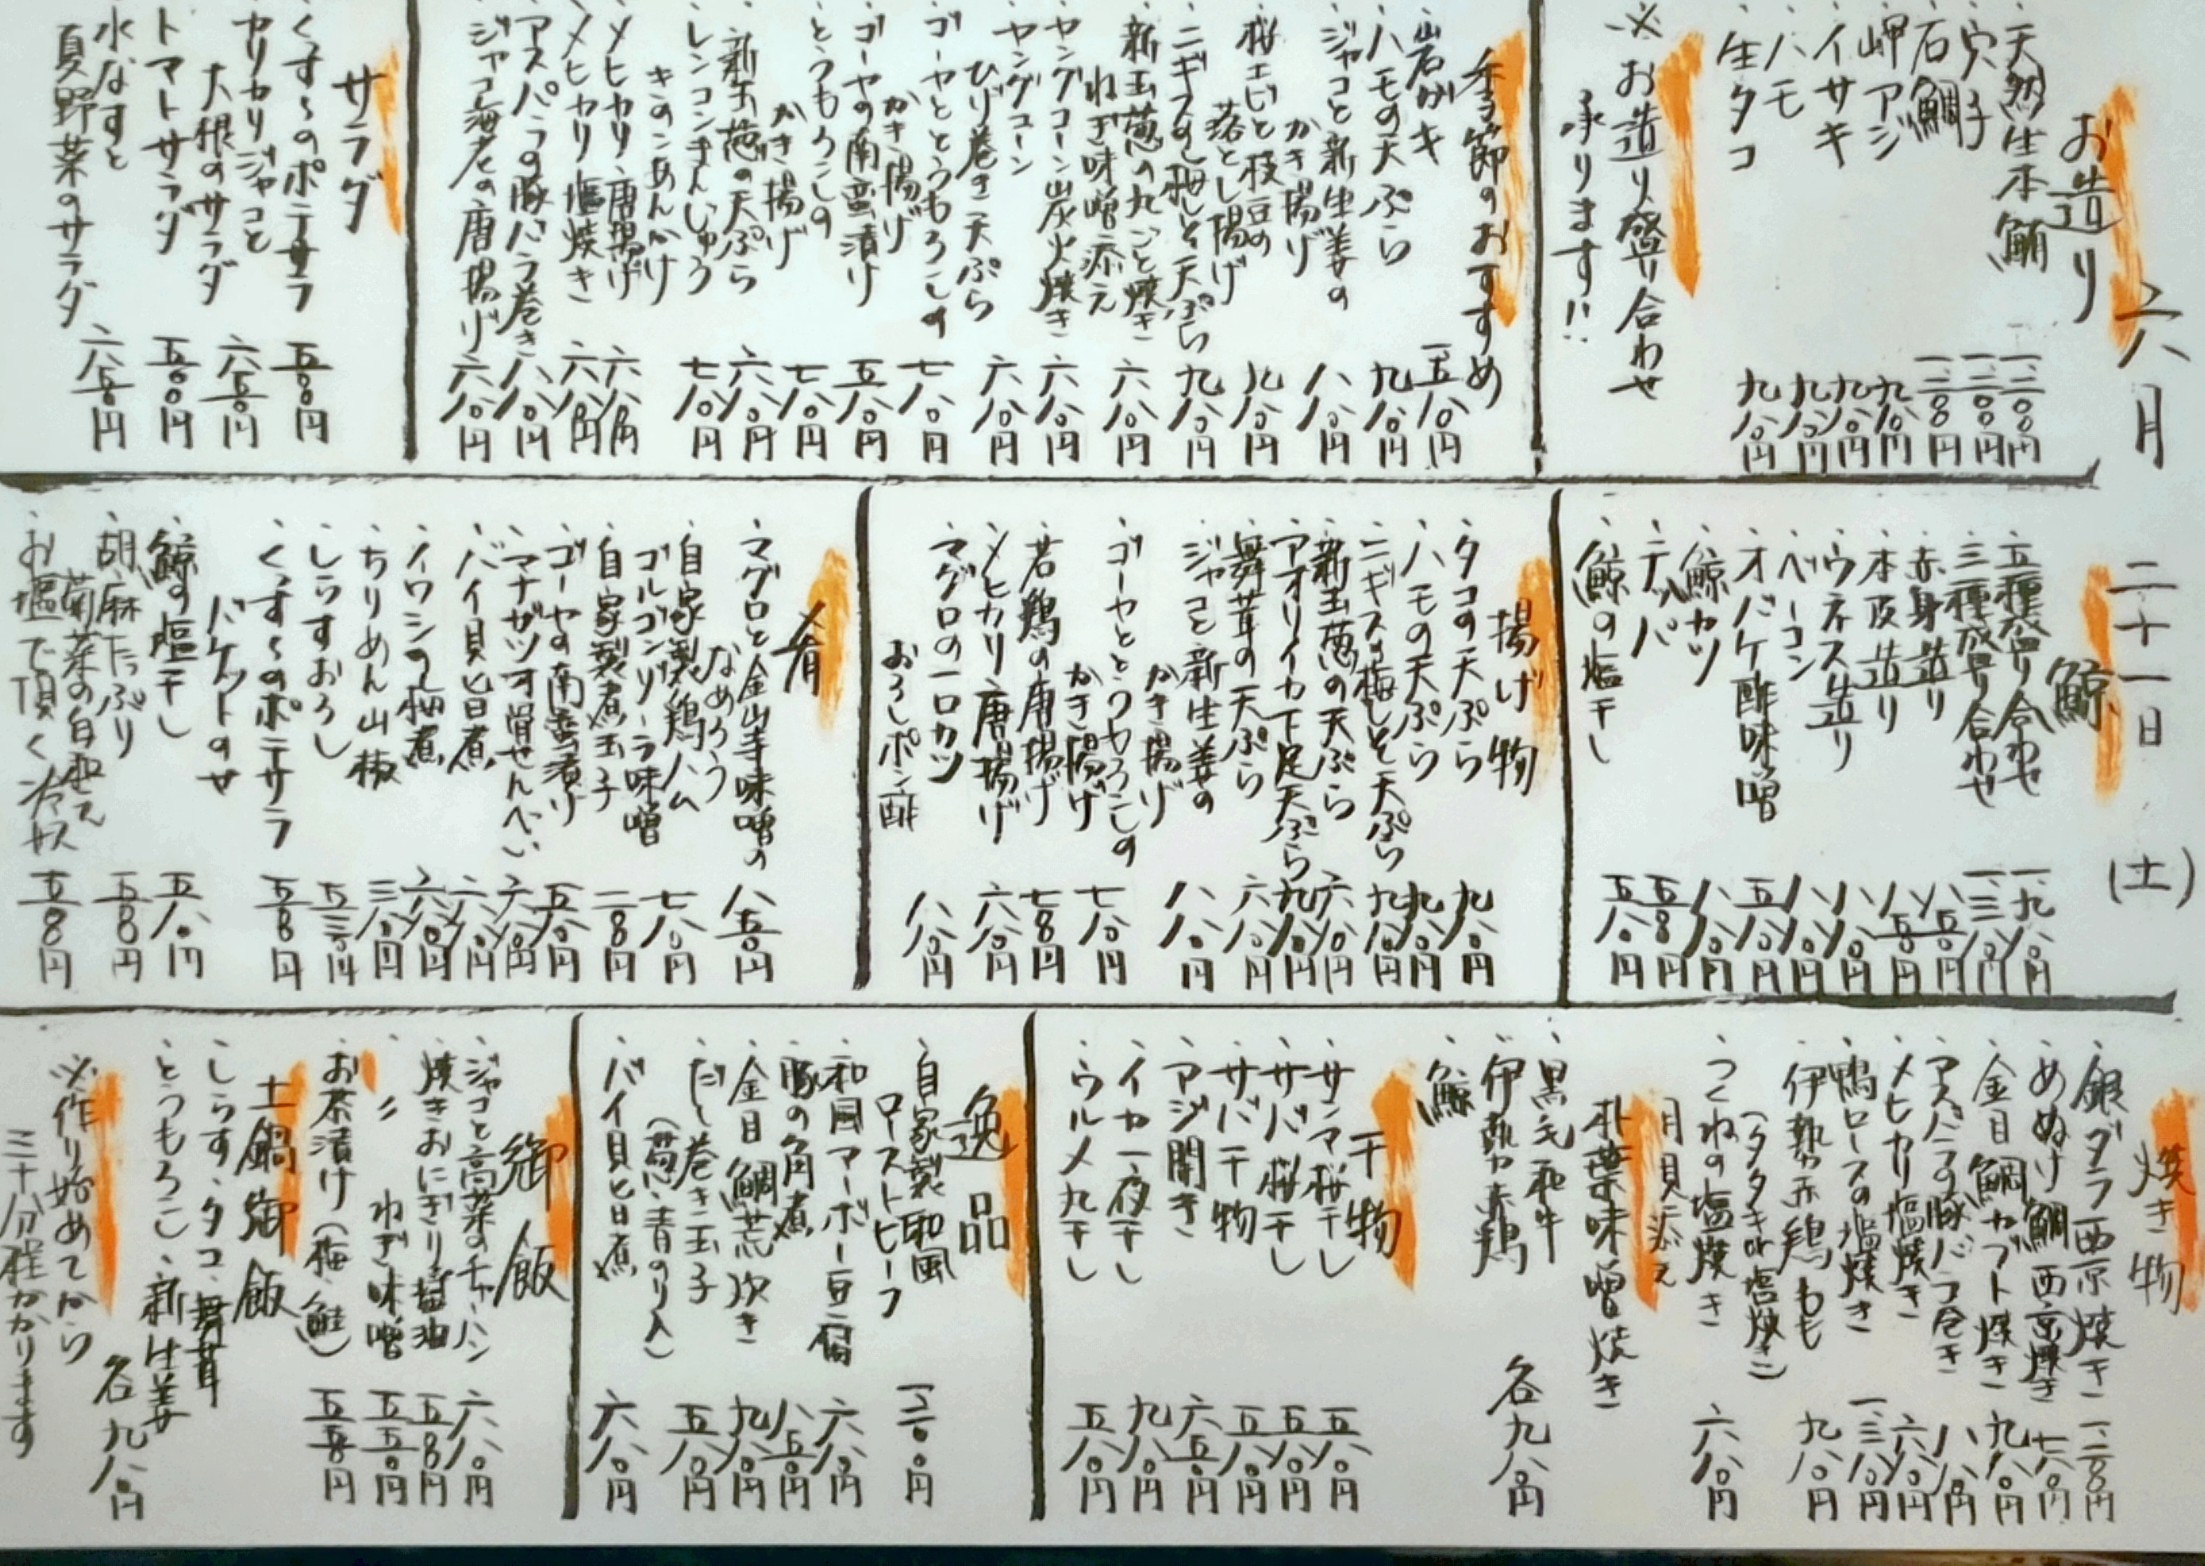 六月
二十一日
(土)
お造り
・天然生本鮪 一、二〇〇円
・穴子 一、三〇〇円
・石鯛
・岬アジ 九八〇円
・イサキ 九八〇円
・ハモ 九八〇円
・生タコ 九八〇円
※お造り盛り合わせ
承ります!!
季節のおすすめ
・岩ガキ 一五八〇円
・ハモの天ぷら 九八〇円
・ジャコと新生姜の
かき揚げ 八八〇円
・桜エビと枝豆の
落とし揚げ 九八〇円
・ニギスの梅しそ天ぷら 九八〇円
・新玉葱の丸ごと焼き
ねぎ味噌添え 六八〇円
・ヤングコーン炭火焼き 六八〇円
・ヤングコーン
ひげ巻き天ぷら 六八〇円
・ゴーヤととうもろこしの
かき揚げ 七八〇円
・ゴーヤの南蛮漬け 五八〇円
・とうもろこしの
かき揚げ 七八〇円
・新玉葱の天ぷら 六八〇円
・レンコンまんじゅう
きのこあんかけ 七八〇円
・メヒカリ唐揚げ 六八〇円
・メヒカリ塩焼き 六八〇円
・アスパラの豚バラ巻き 八八〇円
・ジャコ海老の唐揚げ 六八〇円
サラダ
・くずしのポテサラ 五八〇円
・カリカリジャコと
大根のサラダ 六五〇円
・トマトサラダ 五〇〇円
・水なすと
夏野菜のサラダ 六五〇円
鯨
・五種盛り合わせ 一、九八〇円
・三種盛り合わせ 一、三八〇円
・赤身造り
・本皮造り
・ウネス造り 八八〇円
・ベーコン 八八〇円
・オバケ酢味噌 五八〇円
・鯨カツ 八八〇円
・テッパ
・鯨の塩干し 五八〇円
揚げ物
・タコの天ぷら 九八〇円
・ハモの天ぷら 九八〇円
・ニギスの梅しそ天ぷら 九八〇円
・新玉葱の天ぷら 六八〇円
・アオリイカ下足天ぷら 九八〇円
・舞茸の天ぷら 六八〇円
・ジャコと新生姜の
かき揚げ 八八〇円
・ゴーヤととうもろこしの
かき揚げ 七八〇円
・若鶏の唐揚げ
・メヒカリ唐揚げ 六八〇円
・マグロの一口カツ
おろしポン酢 八八〇円
肴
・マグロと金山寺味噌の
なめろう 八五〇円
・自家製鶏ハム
ゴルゴンゾーラ味噌 七八〇円
・自家製煮玉子
・ゴーヤの南蛮漬け 五八〇円
・マナガツオ骨せんべい
・バイ貝旨煮 六八〇円
・イワシの梅煮 六八〇円
・ちりめん山椒 三八〇円
・しらすおろし
・くずしのポテサラ
バケットのせ
・鯨の塩干し 五八〇円
・胡麻たっぷり
菊菜の白和え
・お塩で頂く冷奴
焼き物
・銀ダラ西京焼き
・めぬけ鯛西京焼き
・金目鯛カブト焼き 九八〇円
・アスパラの豚バラ巻き 八八〇円
・メヒカリ塩焼き 六八〇円
・鴨ロースの塩焼き 一、三八〇円
・伊勢赤鶏もも
(タタキor塩焼き) 九八〇円
・つくねの塩焼き
月見添え 六八〇円
朴葉味噌焼き
・黒毛和牛
・伊勢赤鶏
・鯨
各九八〇円
干物
・サンマ桜干し 五八〇円
・サバ桜干し 五八〇円
・サバ干物 五八〇円
・アジ開き 六五〇円
・イカ一夜干し 九八〇円
・ウルメ丸干し 五八〇円
逸品
・自家製和風
ローストビーフ
・和風マーボー豆腐 六八〇円
・豚の角煮 八五〇円
・金目鯛荒炊き 九八〇円
・だし巻き玉子
(葱・青のり入) 五八〇円
・バイ貝旨煮 六八〇円
御飯
・ジャコと高菜のチャーハン 六八〇円
・焼きおにぎり醤油
・〃 ねぎ味噌 五五〇円
・お茶漬け(梅・鮭)
土鍋御飯
・しらす・タコ・舞茸
・とうもろこし・新生姜
各九八〇円
※作り始めてから
三十分程かかります